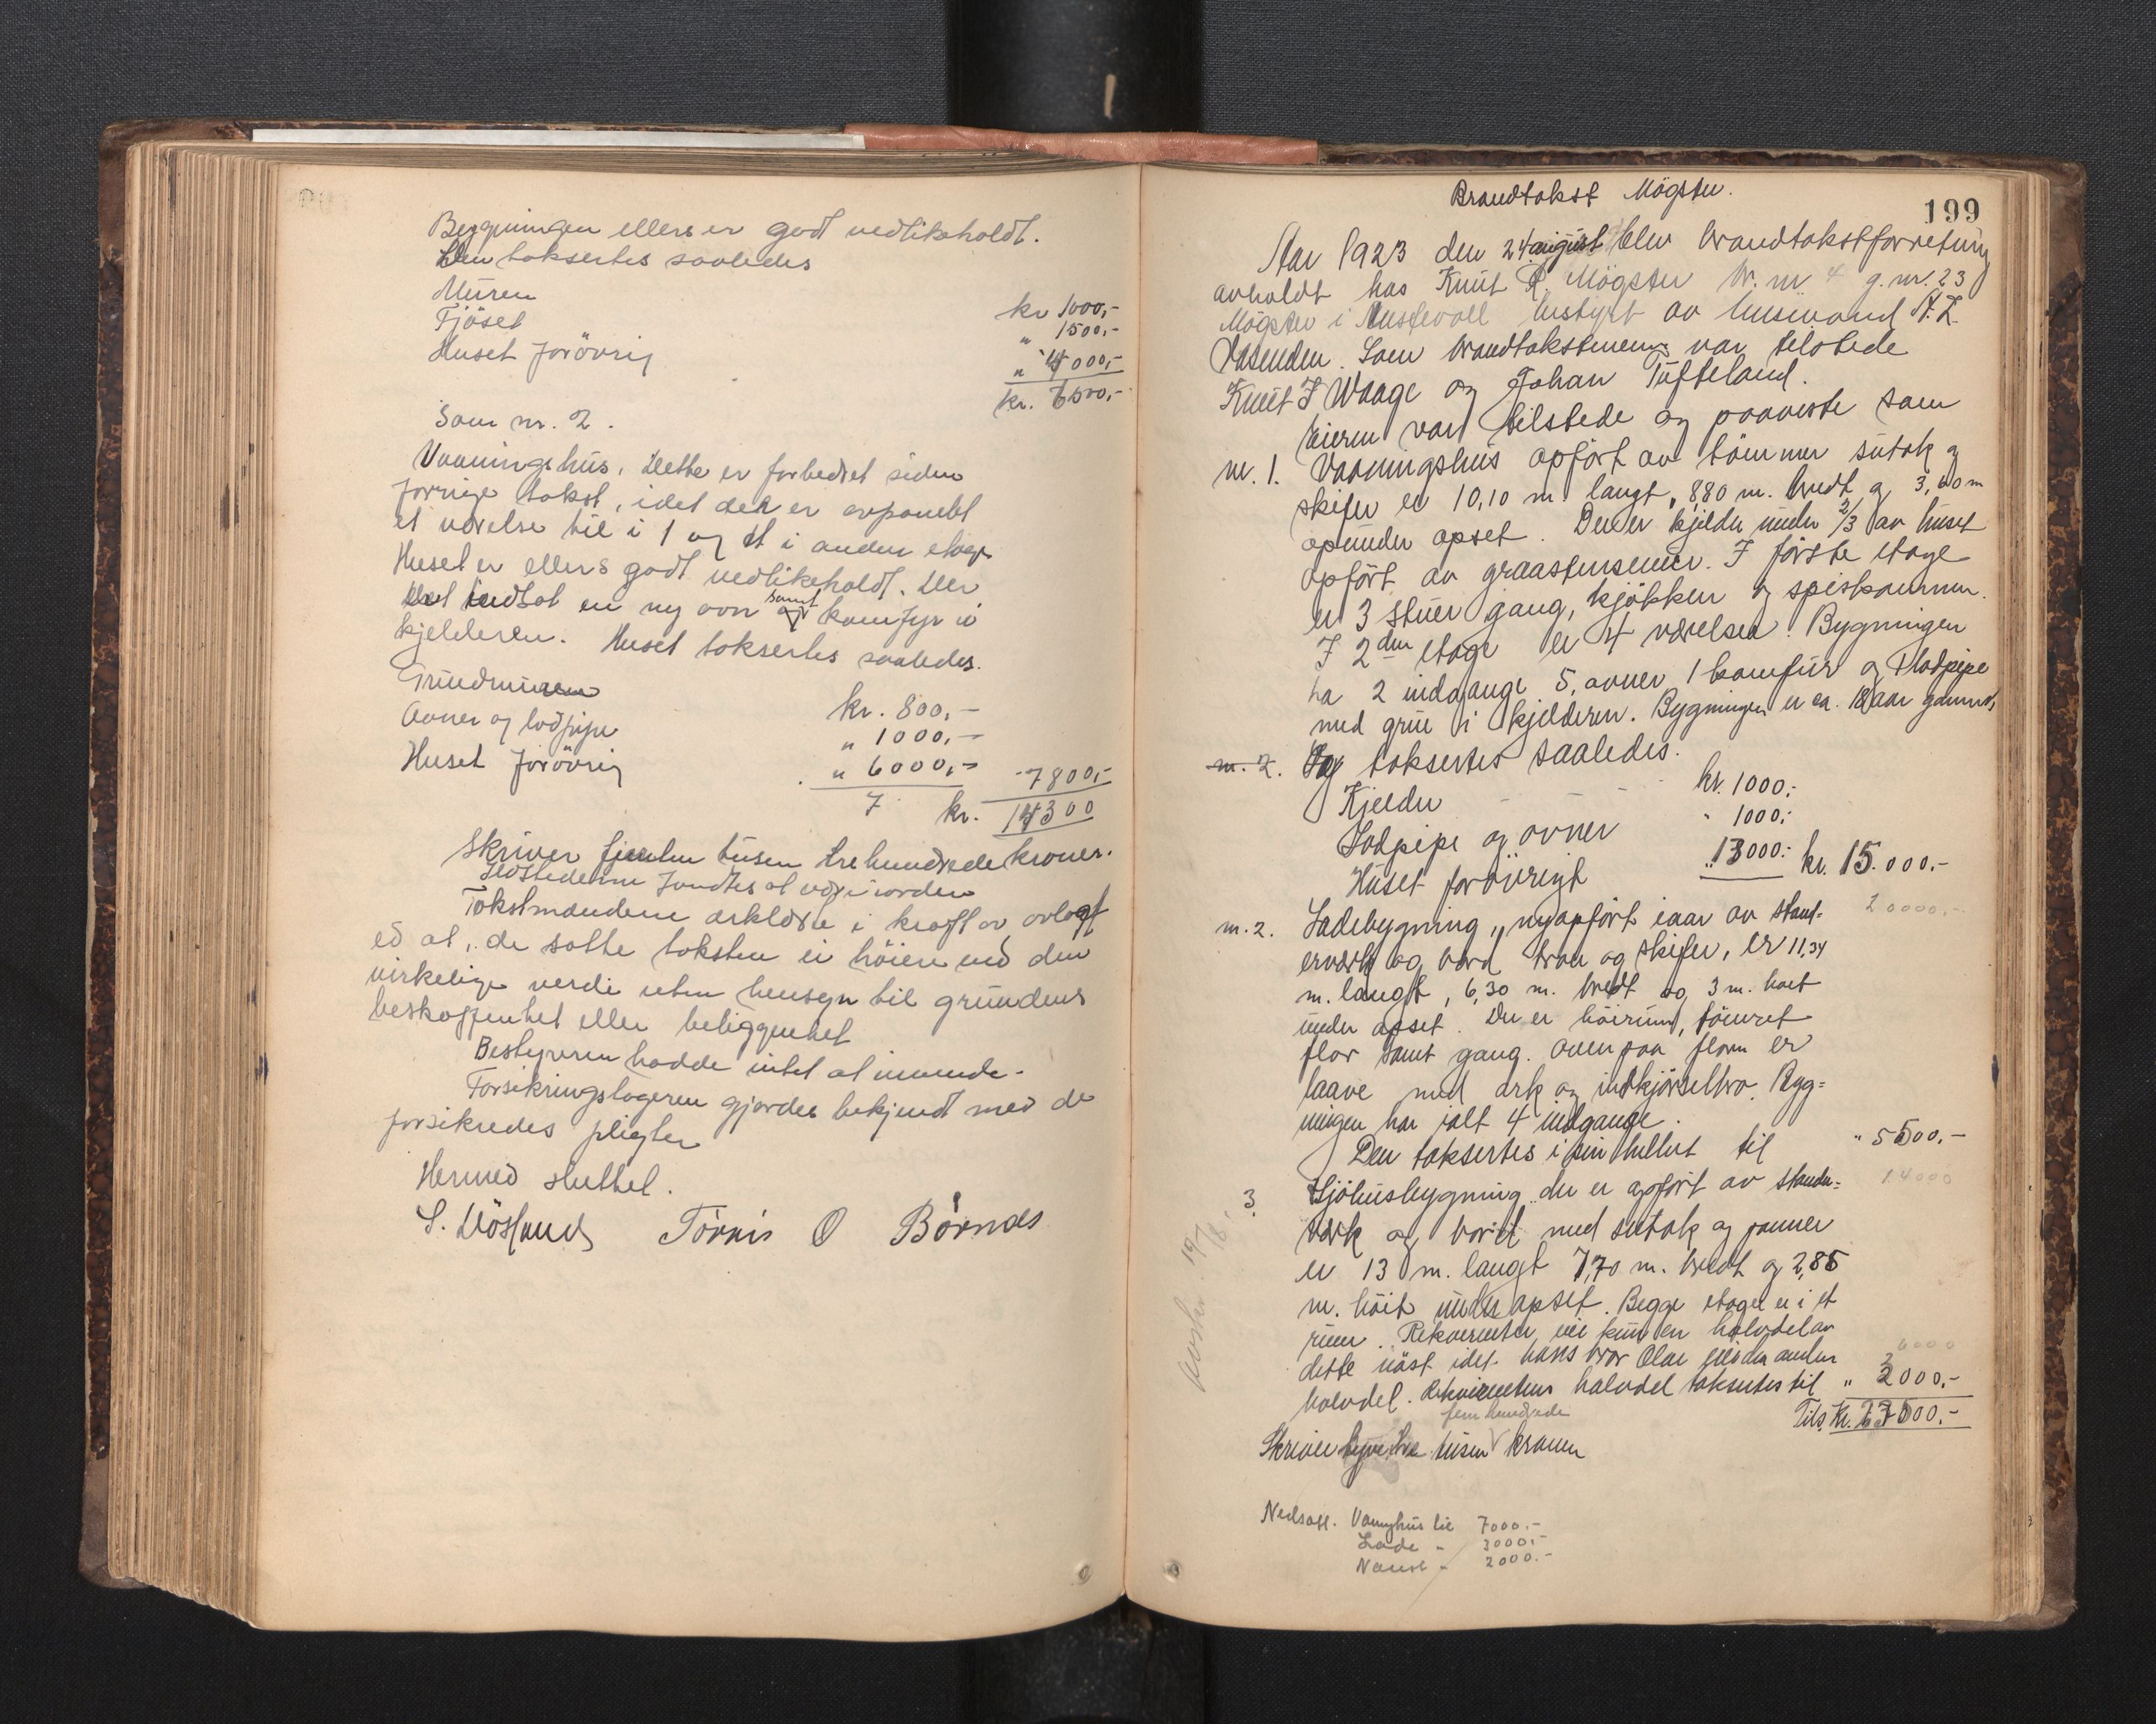 Bygningen ellers er godt vedlikeholdt.
Den takseres saaledes
Muren kr 1000,-
Fjöset " 1500,-
Huset forövrig " 4000,-
kr. 6500,-
Som nr. 2.
Vaaningshus. Dette er forbedret siden
forrige takst, idet der er avpanelt
et værelse til i 1 og et i anden etage
Huset er ellers godt vedlikeholdt. Der
er indsat en ny ovn samt komfyr i
kjelderen. Huset takseres saaledes.
Grundmuren kr. 800,-
Ovner og lodpipe " 1000,-
Huset forövrig " 6000,- - 7800,-
kr. 14300
Skriver fjorten tusen trehundrede kroner.
Ildstederne fandtes at være i orden
Takstmændene erklærte i kraft av avlagt
ed at de satte taksten ei höiere end den
virkelige verdi uten hensyn til grundens
beskaffenhet eller beliggenhet
Bestyreren hadde intet at invende.
Forsikringstageren gjordes bekjendt med de
forsikredes pligter
Hermed sluttet.
S. Döskeland Törris O Börnes
Brandtakst Mögster.
199
Aar 1923 den 24 august blev brandtakstforretning
avholdt hos Knut R. Mögster br. nr 4 g. nr. 23
Mögster i Austevoll bestyrt av lensmand A. Z.
Vasenden. Som brandtakstmenn var tilstede
Knut J Waage og Johan Tufteland.
Eieren var tilstede og paaviste som
nr. 1. Vaaningshus opfört av tömmer sutak og
skifer er 10,10 m langt, 8,80 m. bredt og 3,60 m
opunder opset. Der er kjelder under 2/3 av huset
opfört av graastensmur. I förste etage
er 3 stuer gang, kjökken og spiskammer.
I 2den etage er 4 værelser. Bygningen
ha 2 indgange 5, ovner 1 komfur og 1 lodpipe
med grue i kjelderen. Bygningen er ca. 18 aar gammel,
nr. 2. Og takseres saaledes.
Kjelder kr. 1000,-
Lodpipe og ovner " 1000,-
Huset forövrigt " 13000,- kr. 15.000,-
20000,-
nr. 2. Ladebygning, nyopfört iaar av stand-
erverk og bord tro og skifer, er 11,34
m. langt, 6,30 m. bredt og 3 m. höit
under opset. Der er höirum, tömret
flor samt gang. Ovenpaa floren er
laave med ark og indkjörselbro. Byg=
ningen har ialt 4 indgange.
Den takseres i sin helhet til " 5500,-
14000
3. Sjöhusbygning der er opfört av stender=
verk og bord med sutak og panner
er 13 m. langt 7,70 m. bredt og 2,85
m. höit under opset. Begge etager er i et
rum. Rekvirenten eie kun en halvdel av
dette nöst idet hans bror Olai eier den anden
6000
halvdel. Rekvirentens halvdel takseres til " 3000,-
Tils. kr. 23500,-
fem hundrede
Skriver tyve tre tusen kroner
Nedsatt. Vaanghus til 7000.-
Lade - 3000.-
Naust - 2000.-